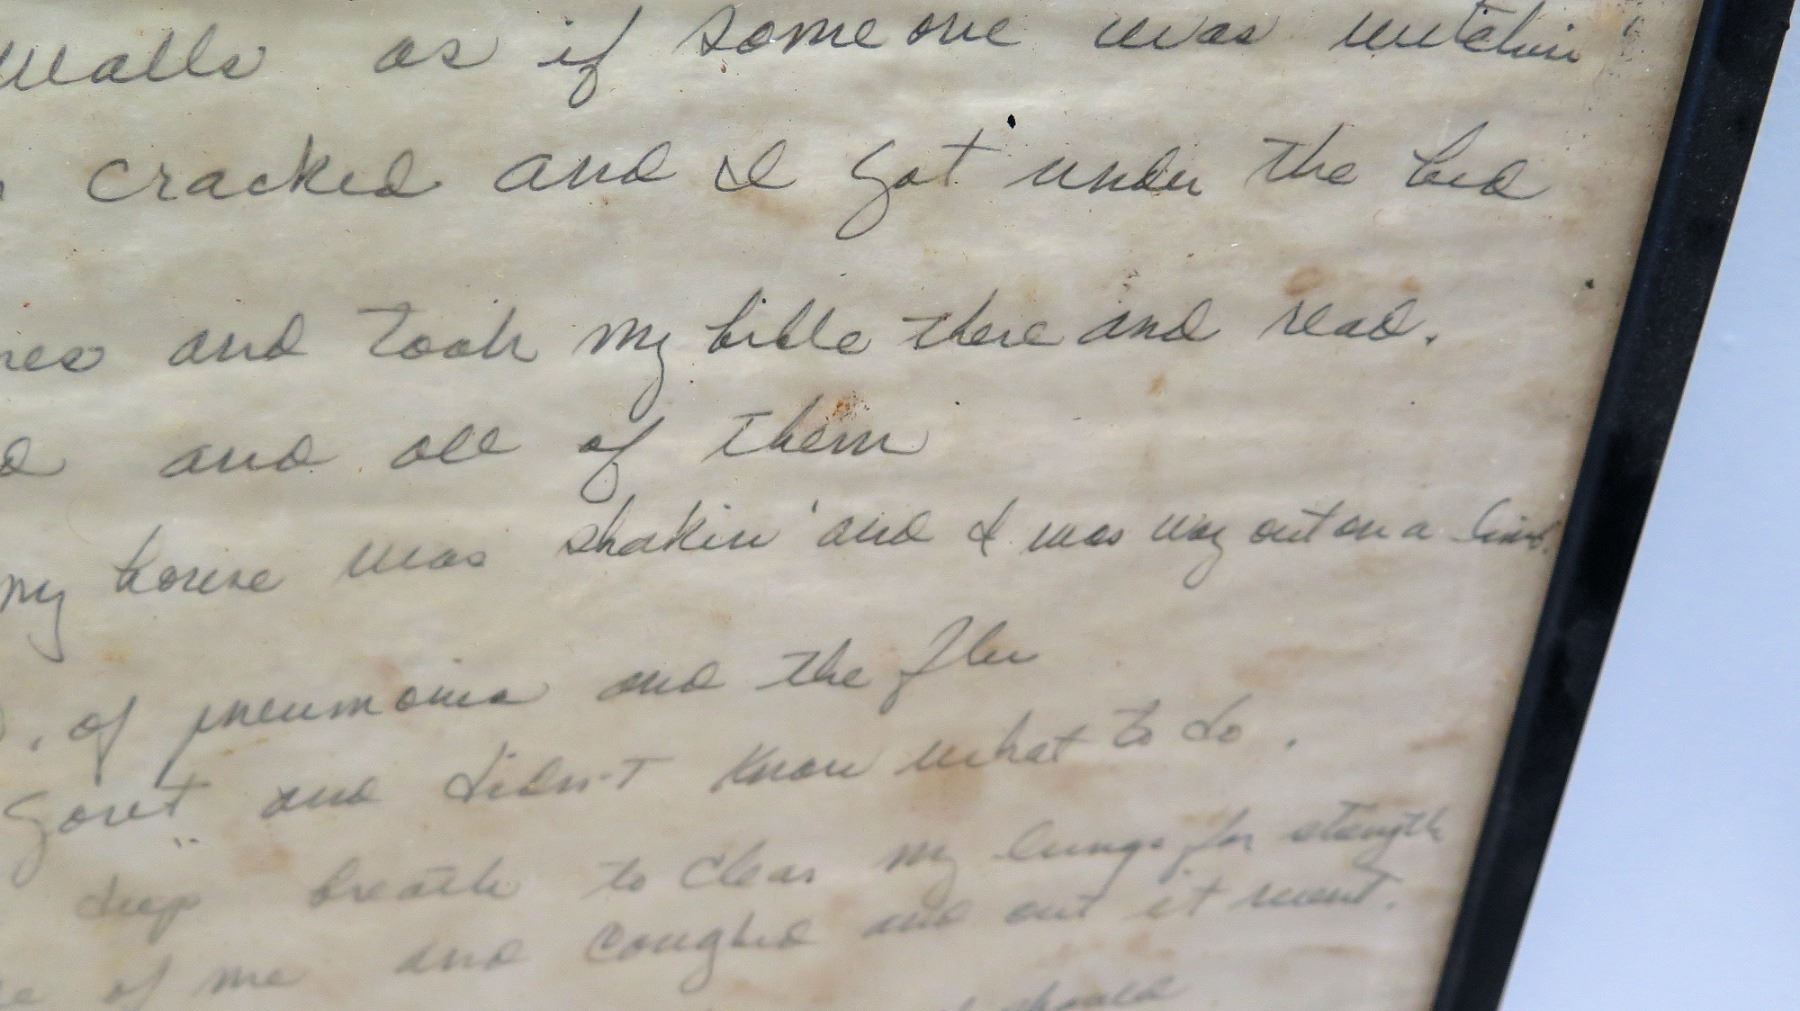 walls as if someone was
cracked and I got under the bed
and took my bible there and read.
and all of them
my house was shakin' and I was way out on a limb.
, of pneumonia and the flu
Govt and didn't know what to do.
deep breath to clear my lungs for stength
of me and coughed and out it went.
should